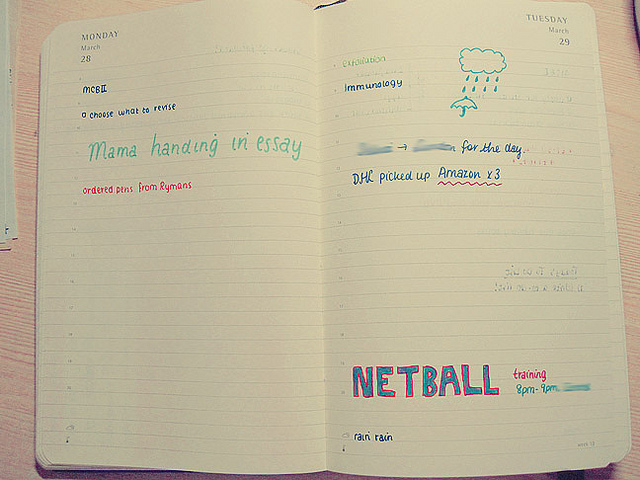 MONDAY
March
28
MCBII
a choose what to revise
Mama handing in essay
ordered pens from Rymans
TUESDAY
March
29
Exfoliation
Immunology
→ for the day.
DHL picked up Amazon x3
NETBALL training
8pm-9pm
rain rain
week 13